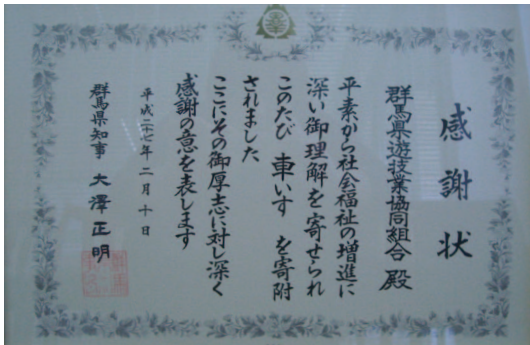 感謝状
群馬県遊技業協同組合 殿
平素から社会福祉の増進に
深い御理解を寄せられ
このたび 車いす を寄附
されました
ここにその御厚志に対し深く
感謝の意を表します
平成二十七年二月十日
群馬県知事 大澤正明